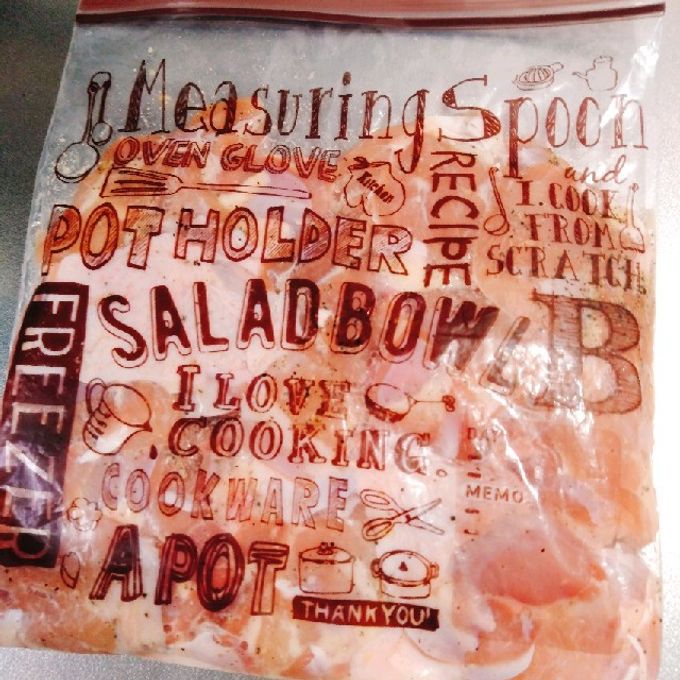 Measuring Spoon
OVEN GLOVE
Kitchen
RECIPE
and
I. COOK
FROM
SCRATCH.
POT HOLDER
SALAD BOWL
B
FREEZER
I LOVE
COOKING.
DAY
MEMO
COOKWARE
A POT
THANK YOU!